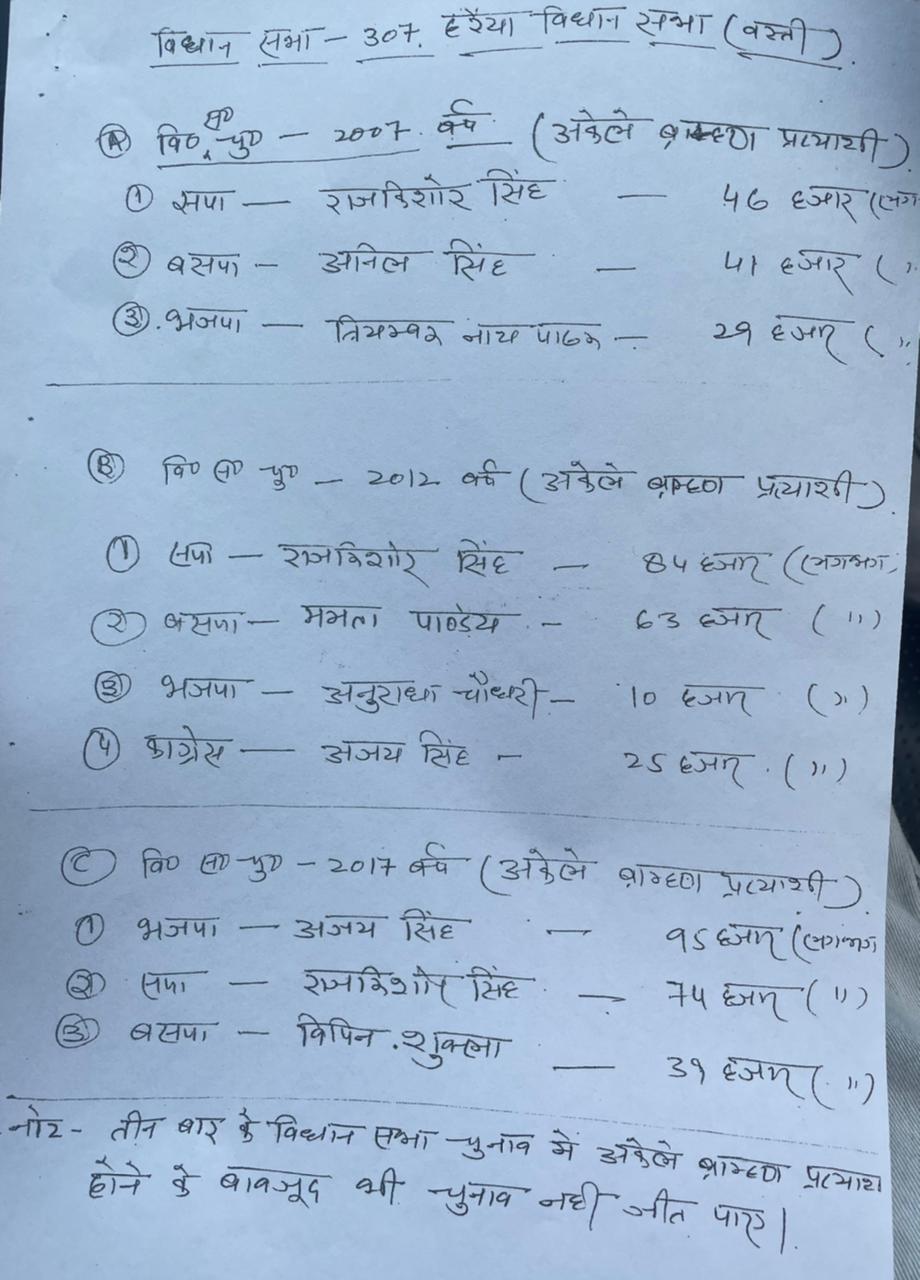 विधान सभा - 307. हर्रैया विधान सभा (बस्ती)
(A) वि० स० चु० - 2007 वर्ष (अकेले ब्राम्हण प्रत्याशी)
(1) सपा - राजकिशोर सिंह - 46 हजार (लग
(2) बसपा - अनिल सिंह - 41 हजार ( "
(3). भजपा - त्रियम्बक नाथ पाठक - 29 हजार ( "
(B) वि० स० चु० - 2012 वर्ष (अकेले ब्राम्हण प्रत्याशी)
(1) सपा - राजकिशोर सिंह - 84 हजार (लगभग
(2) बसपा - ममता पाण्डेय - 63 हजार ( " )
(3) भजपा - अनुराधा चौधरी - 10 हजार ( " )
(4) कांग्रेस - अजय सिंह - 25 हजार ( " )
(C) वि० स० चु० - 2017 वर्ष (अकेले ब्राम्हण प्रत्याशी)
(1) भजपा - अजय सिंह - 95 हजार (लगभग
(2) सपा - राजकिशोर सिंह - 74 हजार ( " )
(3) बसपा - विपिन शुक्ला - 39 हजार ( " )
नोट - तीन बार के विधान सभा चुनाव में अकेले ब्राम्हण प्रत्याश
होने के बावजूद भी चुनाव नही जीत पाए।